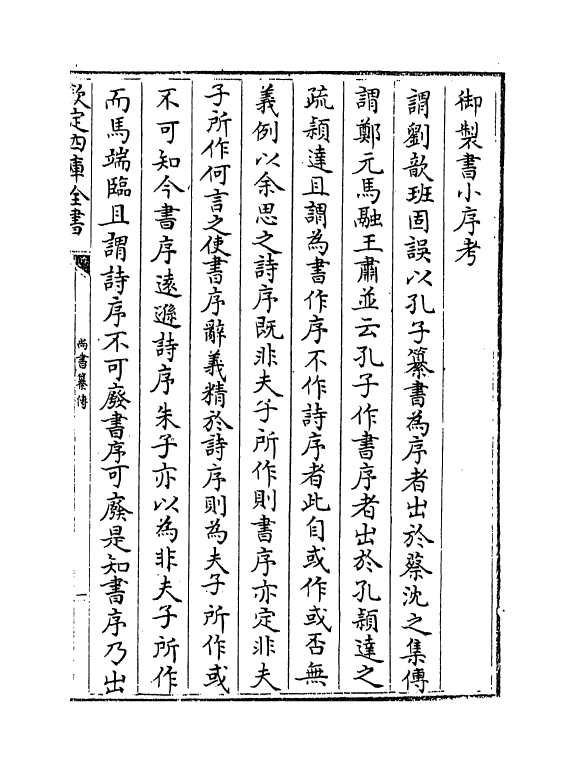 御製書小序考
謂劉歆班固誤以孔子纂書為序者出於蔡沈之集傳
謂鄭元馬融王肅並云孔子作書序者出於孔頴達之
疏頴達且謂為書作序不作詩序者此自或作或否無
義例以余思之詩序既非夫子所作則書序亦定非夫
子所作何言之使書序辭義精於詩序則為夫子所作或
不可知今書序遠遜詩序朱子亦以為非夫子所作
而馬端臨且謂詩序不可廢書序可廢是知書序乃出
欽定四庫全書
尚書纂傳
一